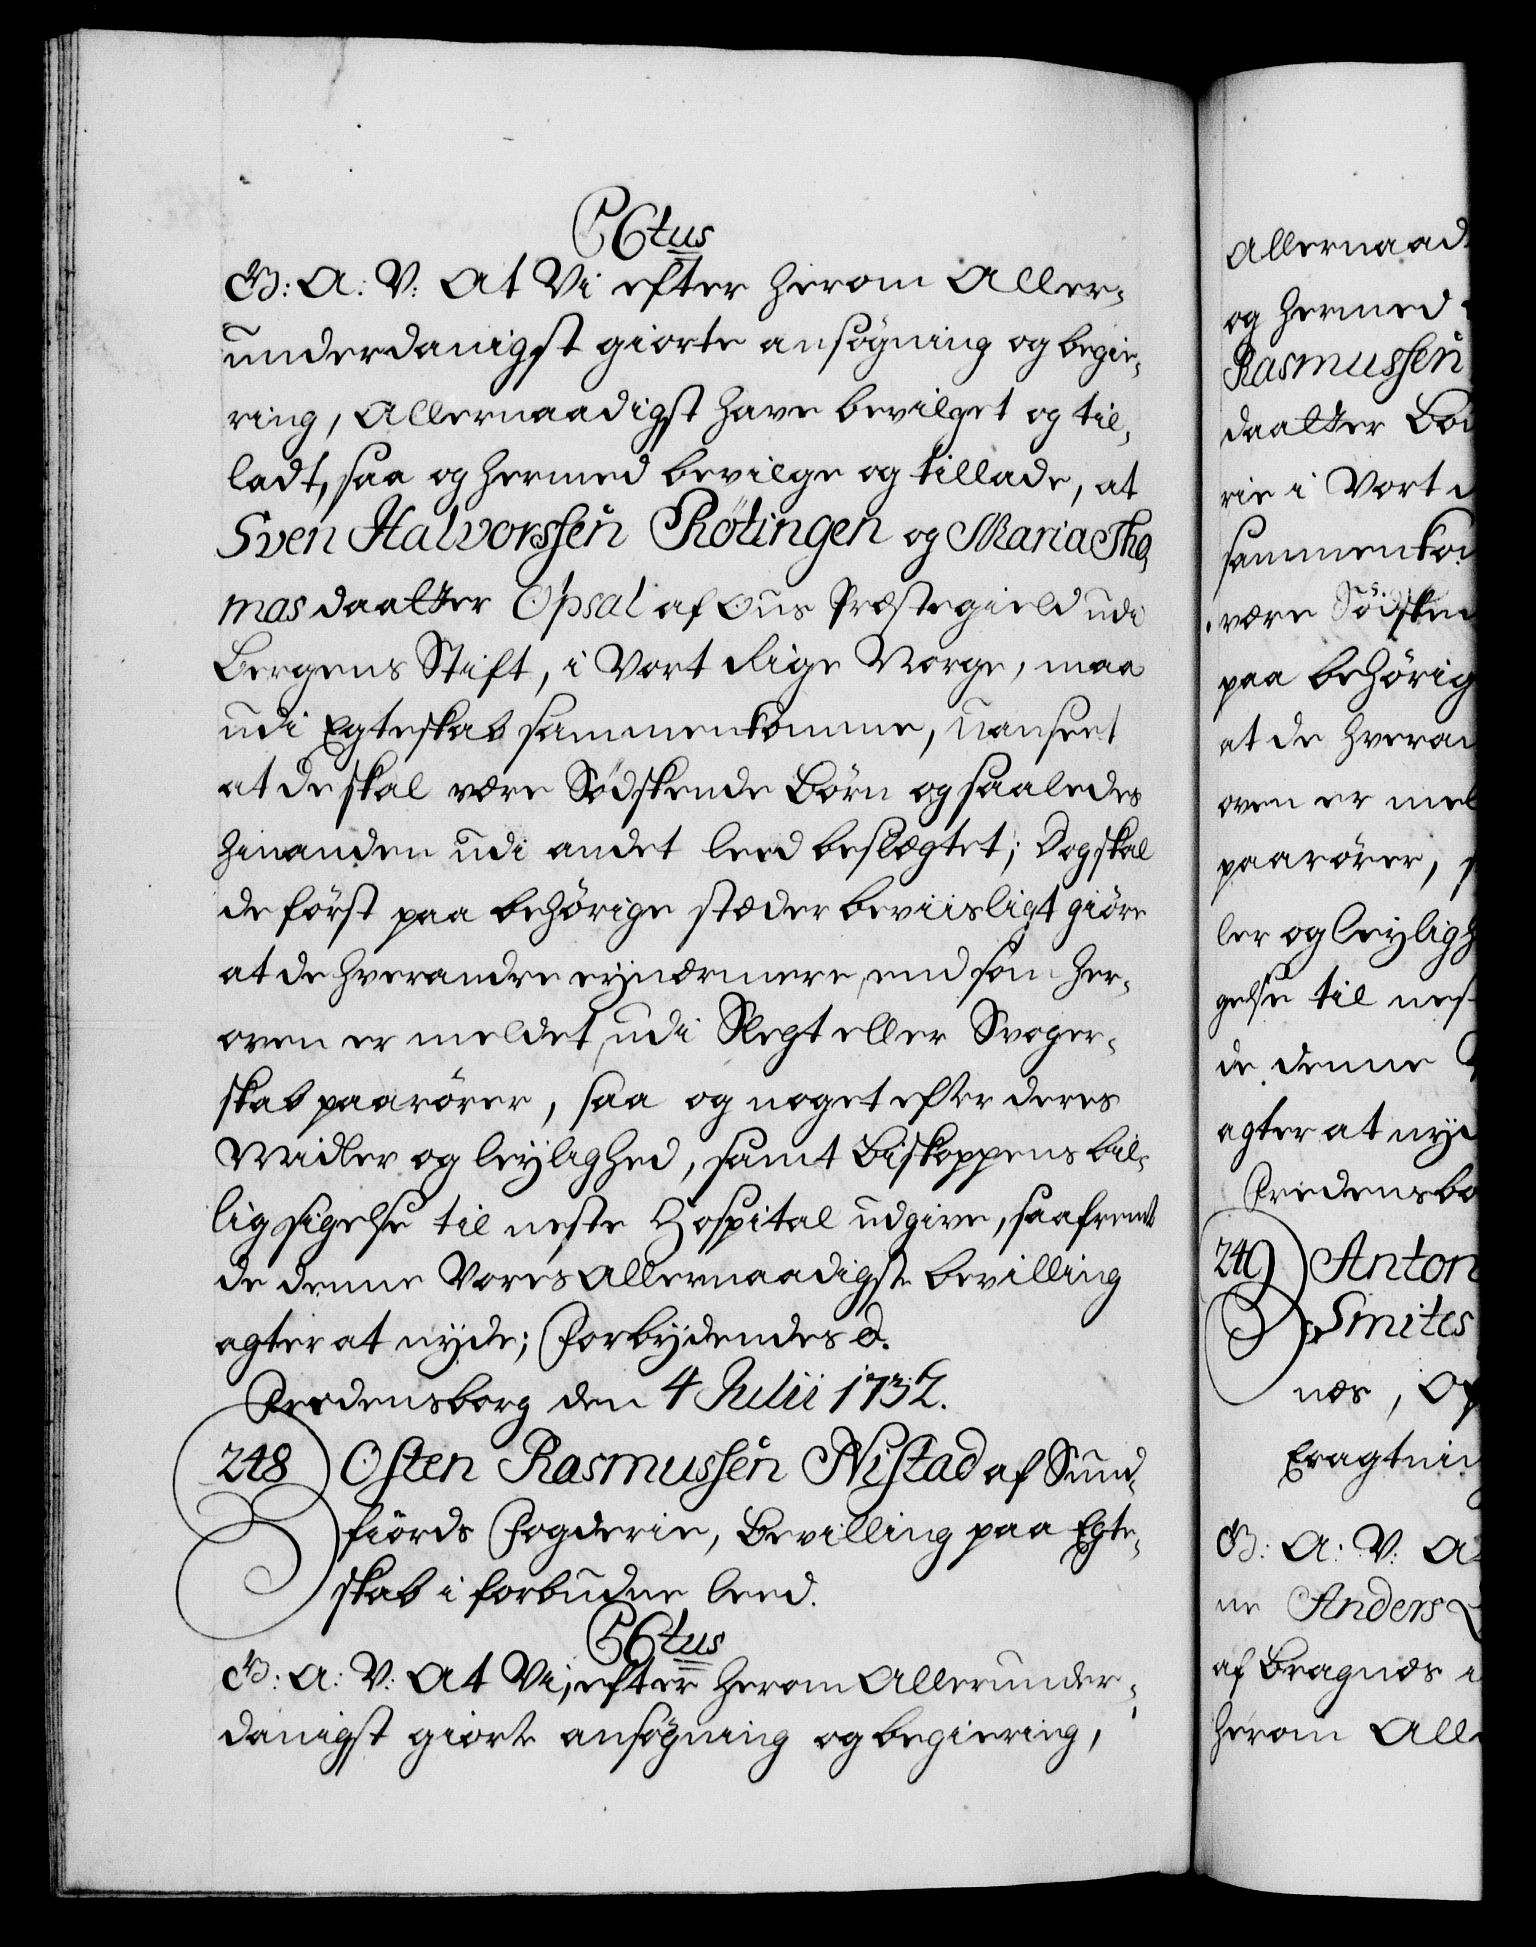 C6tus
G: A: V: At Vi efter herom Aller-
underdanigst giorte ansøgning og begie-
ring, Allernaadigst have bevilget og til-
ladt, saa og hermed bevilge og tillade, at
Sven Halvorssen Rötingen og Maria Tho-
mas daatter Opsal af Ous Præstegield udi
Bergens Stift, i Vort Rige Norge, maa
udi Egteskab sammenkomme, uanseet
at de skal være Södskende Börn og saaledes
hinanden udi andet leed beslægtet; Dog skal
de först paa behörige stæder beviisligt giöre
at de hverandre ey nærmere end som her-
oven er meldet, udi Slegt eller Svoger-
skab paarörer, saa og noget efter deres
Midler og leylighed, samt Biskoppens bil-
lig sigelse til neste Hospital udgive, saafremt
de denne Vores Allernaadigste bevilling
agter at nyde; Forbydendes &.
Fredensborg den 4 Julii 1732.
248 Osten Rasmussen Nistad af Sund-
fiords Fogderie, Bevilling paa Egte-
skab i forbudne leed.
C6tus
G: A: V: At Vi, efter herom Allerunder-
danigst giorte ansøgning og begiering,
Allernaad
og hermed
Rasmussen
daatter
rie i Vort
sammenkom
være Södsken
paa behörig
at de hveran
oven er mel
paarörer,
ler og leyligh
gelse til nes
de denne
agter at nyd
Fredensbo
249 Anton
Smites
næs,
Eragtnin
G: A: V: A
ne Anders
af Bragnæs
herom Alle